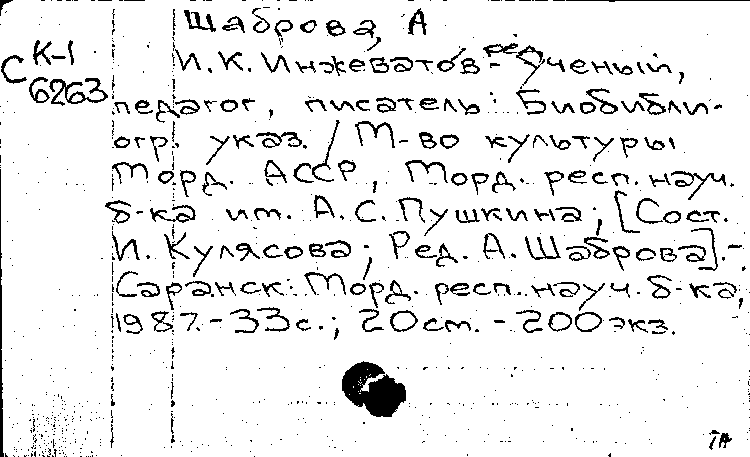 Шаброва, А
ред.
С К-1
6263
И.К. Инжеватов - ученый,
педагог, писатель: Биобибли-
огр. указ. / М-во культуры
Морд. АССР, Морд. респ. науч.
б-ка им. А.С. Пушкина; [Сост.
И. Кулясова; Ред. А. Шаброва]. -
Саранск: Морд. респ. науч. б-ка,
1987. - 33 с.; 20 см. - 200 экз.